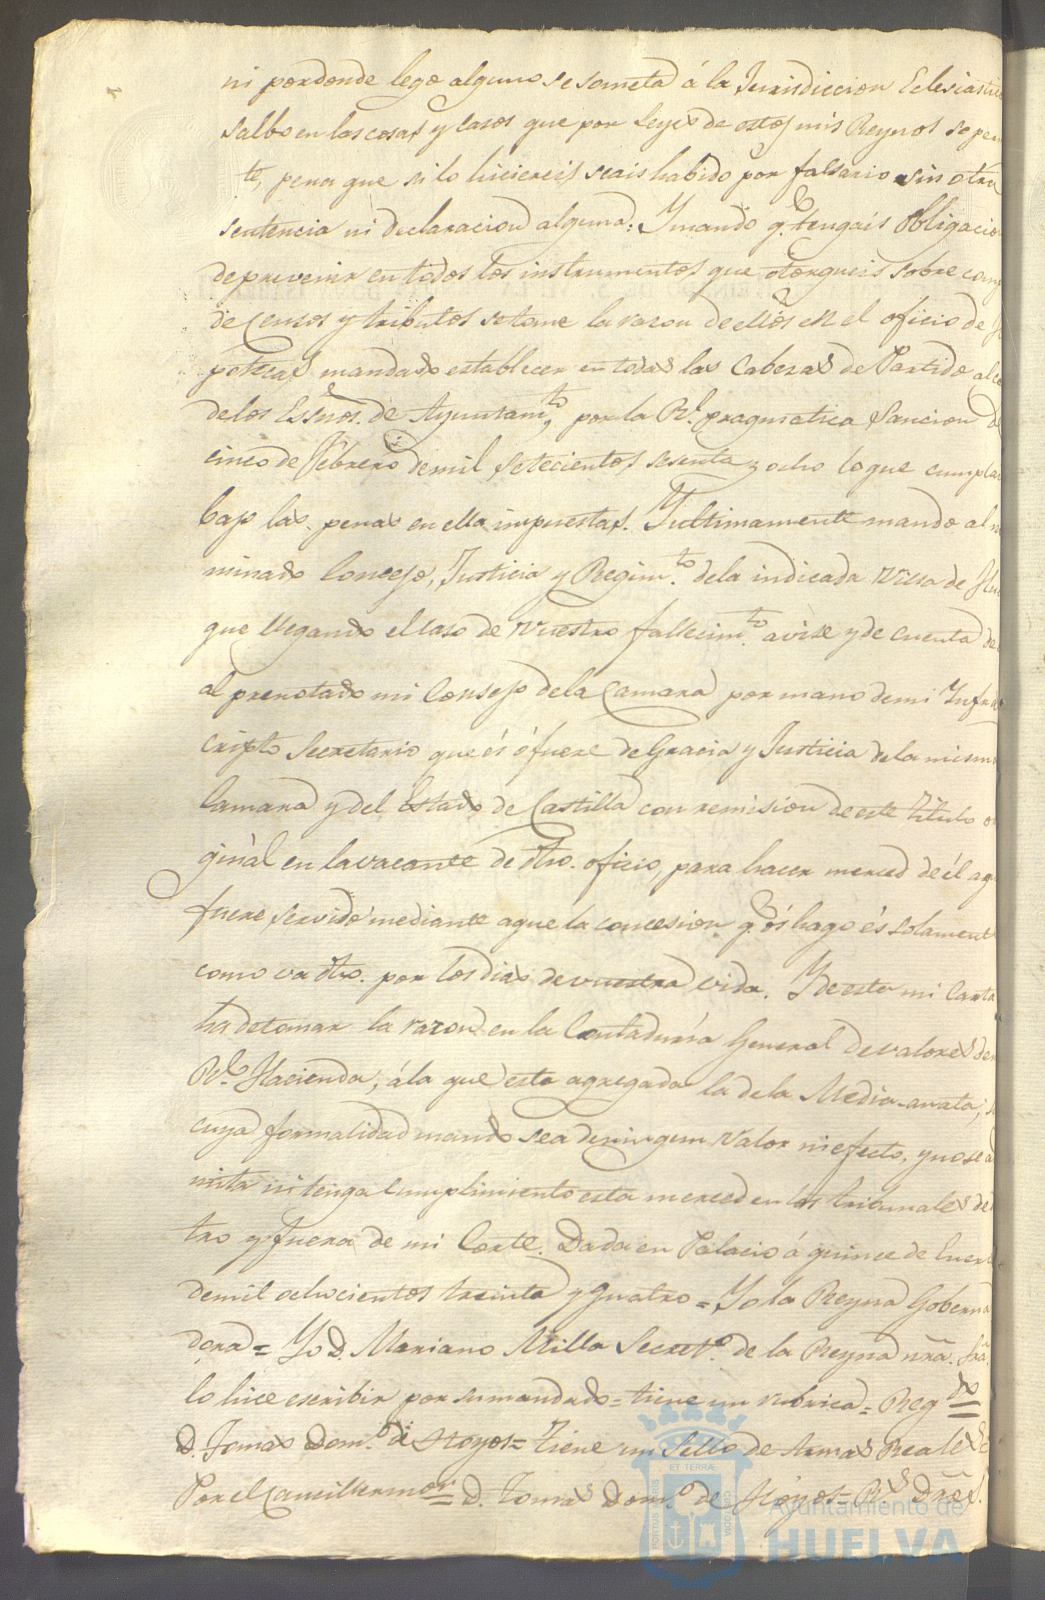 ni por donde lego alguno se someta á la Jurisdiccion Eclesiastic
salbo en las cosas y casos que por Leyes de estos mis Reynos se per
te, pena que si lo hiciereis seais habido por falsario sin otra
sentencia ni declaracion alguna: Y mando q.e tengais obligacio
de prevenir en todos los instrumentos que otorgueis sobre com
de Censos y tributos se tome la razon de ellos en el oficio de
potecas mandado establecer en todas las Cabezas de Partido al
de los Essnos. de Ayuntam.to, por la R.l pragmatica sancion de
cinco de Febrero de mil setecientos sesenta y ocho lo que cumpla
bajo las penas en ella impuestas. Y ultimamente mando al
minado Concejo, Justicia y Regim.to de la indicada Villa de Hu
que llegando el caso de vuestro fallecim.to avise y de cuenta de
al prenotado mi Consejo de la Camara por mano de mi Infra
cripto Secretario que és ó fuere de Gracia y Justicia de la misma
Camara y del Estado de Castilla con remision de este titulo o
ginál en la vacante de dho. oficio, para hacer merced de él a q
fuere servido mediante a que la concesion q.e ós hago és solament
como va dho. por los dias de vuestra vida. Y de esta mi Carta
ha de tomar la razon en la Contaduría General de valores de
R.l Hacienda, á la que esta agregada la de la Media-anata,
cuya formalidad mando sea de ningun valor ni efecto, y no se a
mita ni tenga cumplimiento esta merced en los tribunales de
tro y fuera de mi Corte. Dada en Palacio á quince de Ener
de mil ochocientos treinta y quatro = Yo la Reyna Goberna
dora = Yo D. Mariano Milla Secret.o de la Reyna nrã. Srã.
lo hice escribir por su mandado = tiene un rubrica = Reg.do
D. Tomas Dom.o de Hoyos = tiene un Sello de Armas Reales
Por el Canciller mor = D. Tomas Dom.o de Hoyos = R.s Dros.
PORTUS MARIS
ET TERRÆ
CUSTODIA
Ayuntamiento de
HUELVA